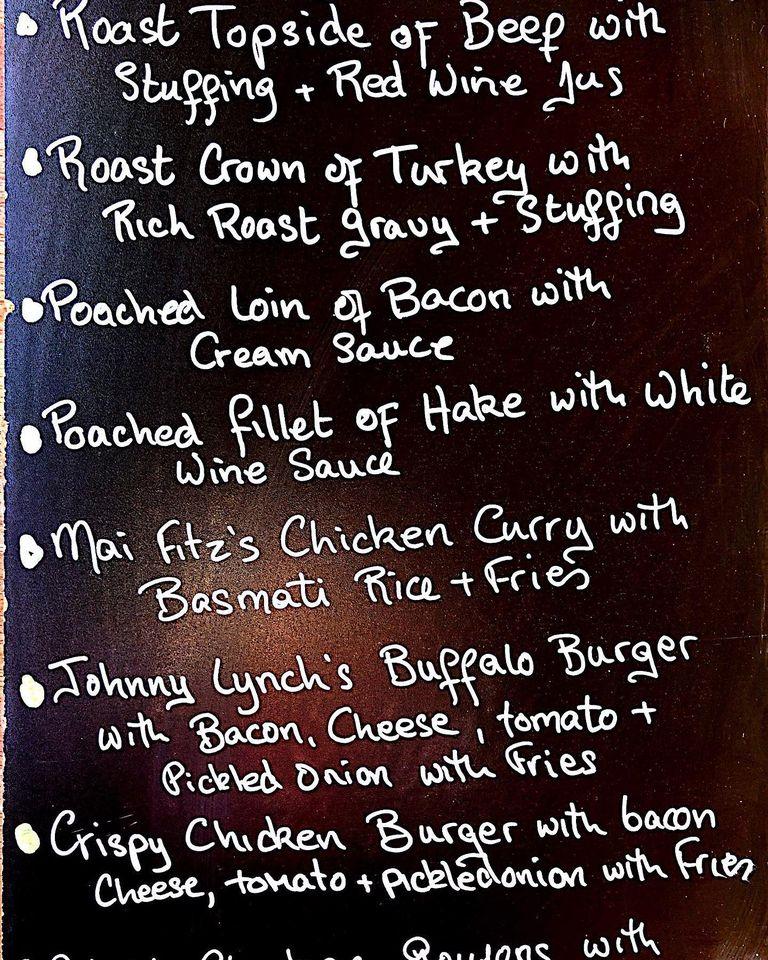 • Roast Topside of Beef with
Stuffing + Red Wine Jus
• Roast Crown of Turkey with
Rich Roast gravy + Stuffing
• Poached Loin of Bacon with
Cream Sauce
• Poached fillet of Hake with White
Wine Sauce
• Mai Fitz's Chicken Curry with
Basmati Rice + Fries
• Johnny Lynch's Buffalo Burger
with Bacon, Cheese, tomato +
Pickled Onion with Fries
• Crispy Chicken Burger with bacon
Cheese, tomato + pickled onion with Fries
with